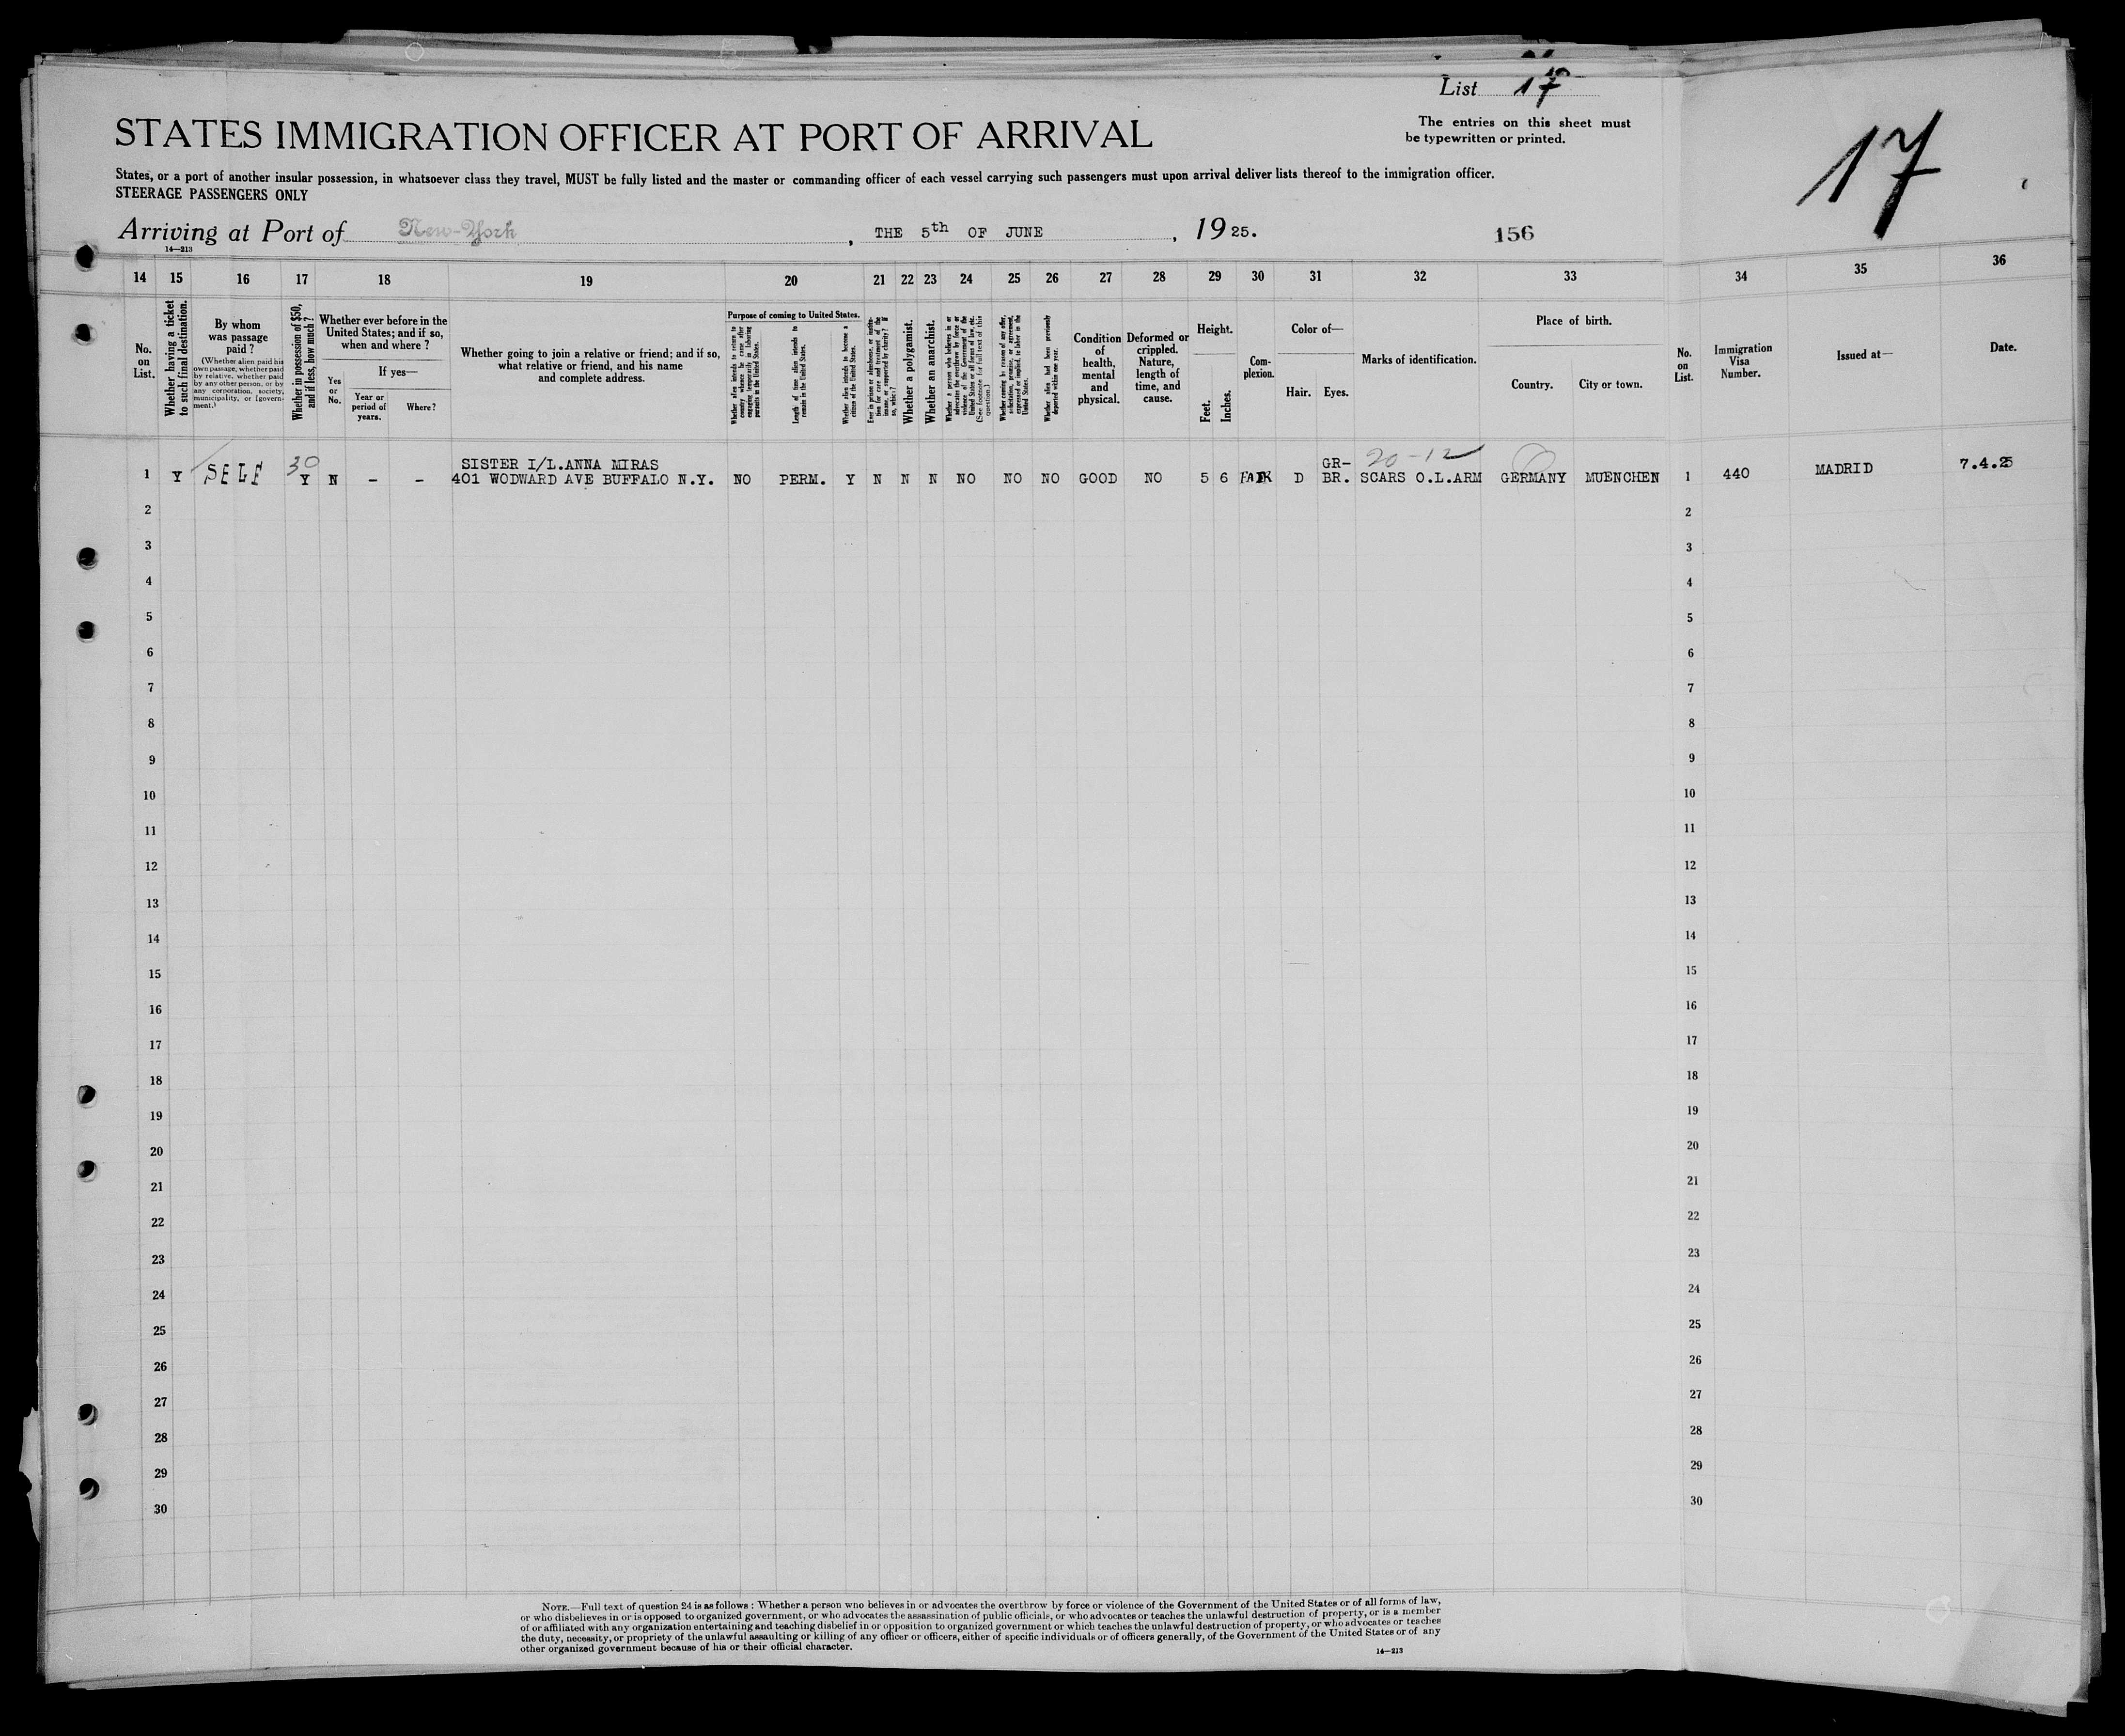 List 17
The entries on this sheet must
be typewritten or printed.
17
STATES IMMIGRATION OFFICER AT PORT OF ARRIVAL
States, or a port of another insular possession, in whatsoever class they travel, MUST be fully listed and the master or commanding officer of each vessel carrying such passengers must upon arrival deliver lists thereof to the immigration officer.
STEERAGE PASSENGERS ONLY
Arriving at Port of New-York, THE 5th OF JUNE, 1925.
156
14—213
14 15 16 17 18 19 20 21 22 23 24 25 26 27 28 29 30 31 32 33 34 35 36
No. on List.
Whether having a ticket to such final destination.
By whom was passage paid?
(Whether alien paid his own passage, whether paid by relative, whether paid by any other person, or by any corporation, society, municipality, or government.)
Whether in possession of $50, and if less, how much?
Whether ever before in the United States; and if so, when and where?
Yes or No.
If yes—
Year or period of years.
Where?
Whether going to join a relative or friend; and if so, what relative or friend, and his name and complete address.
Purpose of coming to United States.
Whether alien intends to return to country whence he came after engaging temporarily in laboring pursuits in the United States.
Length of time alien intends to remain in the United States.
Whether alien intends to become a citizen of the United States.
Ever in prison or almshouse, or institution for care and treatment of the insane, or supported by charity? If so, which?
Whether a polygamist.
Whether an anarchist.
Whether a person who believes in or advocates the overthrow by force or violence of the Government of the United States or all forms of law, etc. (See footnote for full text of this question.)
Whether coming by reason of any offer, solicitation, promise, or agreement, expressed or implied, to labor in the United States.
Whether alien had been previously deported within one year.
Condition of health, mental and physical.
Deformed or crippled. Nature, length of time, and cause.
Height.
Feet.
Inches.
Complexion.
Color of—
Hair.
Eyes.
Marks of identification.
Place of birth.
Country.
City or town.
No. on List.
Immigration Visa Number.
Issued at—
Date.
30 SISTER I/L.ANNA MIRAS GR- 20-12
1 Y SELF Y N - - 401 WODWARD AVE BUFFALO N.Y. NO PERM. Y N N N NO NO NO GOOD NO 5 6 D BR. SCARS O.L.ARM GERMANY MUENCHEN 1 440 MADRID 7.4.25
2 2
3 3
4 4
5 5
6 6
7 7
8 8
9 9
10 10
11 11
12 12
13 13
14 14
15 15
16 16
17 17
18 18
19 19
20 20
21 21
22 22
23 23
24 24
25 25
26 26
27 27
28 28
29 29
30 30
NOTE.—Full text of question 24 is as follows: Whether a person who believes in or advocates the overthrow by force or violence of the Government of the United States or of all forms of law,
or who disbelieves in or is opposed to organized government, or who advocates the assassination of public officials, or who advocates or teaches the unlawful destruction of property, or is a member
of or affiliated with any organization entertaining and teaching disbelief in or opposition to organized government or which teaches the unlawful destruction of property, or who advocates or teaches
the duty, necessity, or propriety of the unlawful assaulting or killing of any officer or officers, either of specific individuals or of officers generally, of the Government of the United States or of any
other organized government because of his or their official character.
14—213